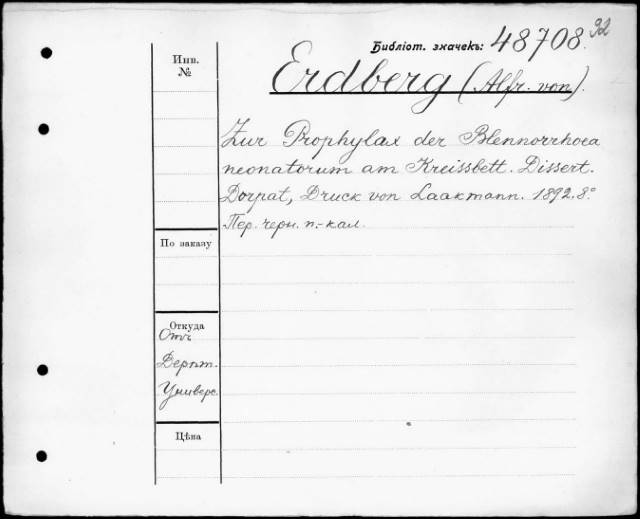 Библіот. значекъ: 48708. 92
Инв.
№
Erdberg (Alfr. von).
Zur Prophylax der Blennorrhoea
neonatorum am Kreissbett. Dissert.
Dorpat, Druck von Laakmann. 1892. 8°
Пер. черн. п.-кал.
По заказу
Откуда
Отъ
Дерпт.
Универс.
Цѣна